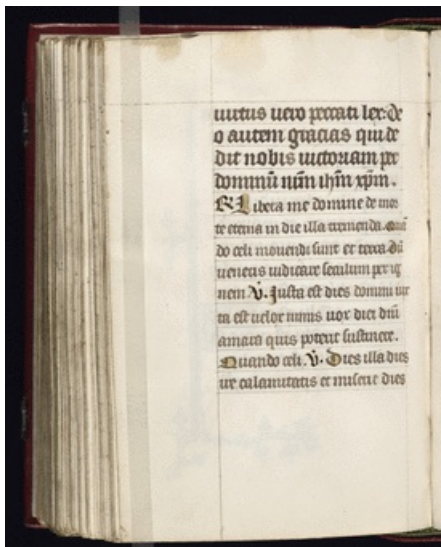 uirtus uero peccati lex: de
o autem gracias qui de
dit nobis uictoriam per
dominū nr̄m ihm̄ xpm̄.
R Libera me domine de mor
te eterna in die illa tremenda. quā
do celi mouendi sunt et terra dū
ueneris iudicare seculum per ig
nem V. Iuxta est dies domini iux
ta est uelox nimis uox diei dn̄i
amara quis poterit sustinere.
Quando celi. V. Dies illa dies
ire calamitatis et miserie dies